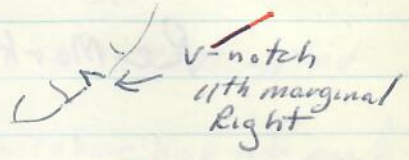 v-notch
11th marginal
Right